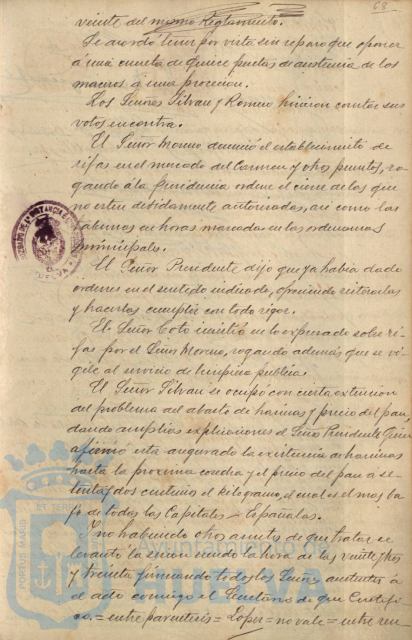 68
veinte del mismo Reglamento.
Se acordó tener por vista sin reparo que oponer
á una cuenta de quince pesetas de asistencia de los
maceros á una procesion.
Los Señores Tilvan y Romero hicieron constar sus
votos en contra.
El Señor Moreno denunció el establecimiento de
rifas en el mercado del Carmen y otros puntos, ro-
gando á la Presidencia ordene el cierre de los que
no esten debidamente autorizados, asi como las
tabernas en horas marcadas en las ordenanzas
municipales.
El Señor Presidente dijo que ya habia dado
ordenes en el sentido indicado, ofreciendo reiterarlas
y hacerlas cumplir con todo rigor.
El Señor Coto insistió en lo expresado sobre ri-
fas por el Señor Moreno, rogando además que se vi-
gile el servicio de limpieza publica.
El Señor Tilvan se ocupó con cierta extension
del problema del abasto de harinas y precio del pan,
dando amplias explicaciones el Señor Presidente quien
afirmó está asegurada la existencia de harinas
hasta la proxima cosecha y el precio del pan á se-
tenta y dos centimos el kilogramo, el cual es el mas ba-
jo de todas las Capitales Españolas.
Y no habiendo otros asuntos de que tratar se
levantó la sesion siendo la hora de las veinte y tres
y treinta firmando todos los Señores asistentes
el acta conmigo el Secretario de que Certifi-
co.= entre parentesis = Lopez = no vale = entre ren